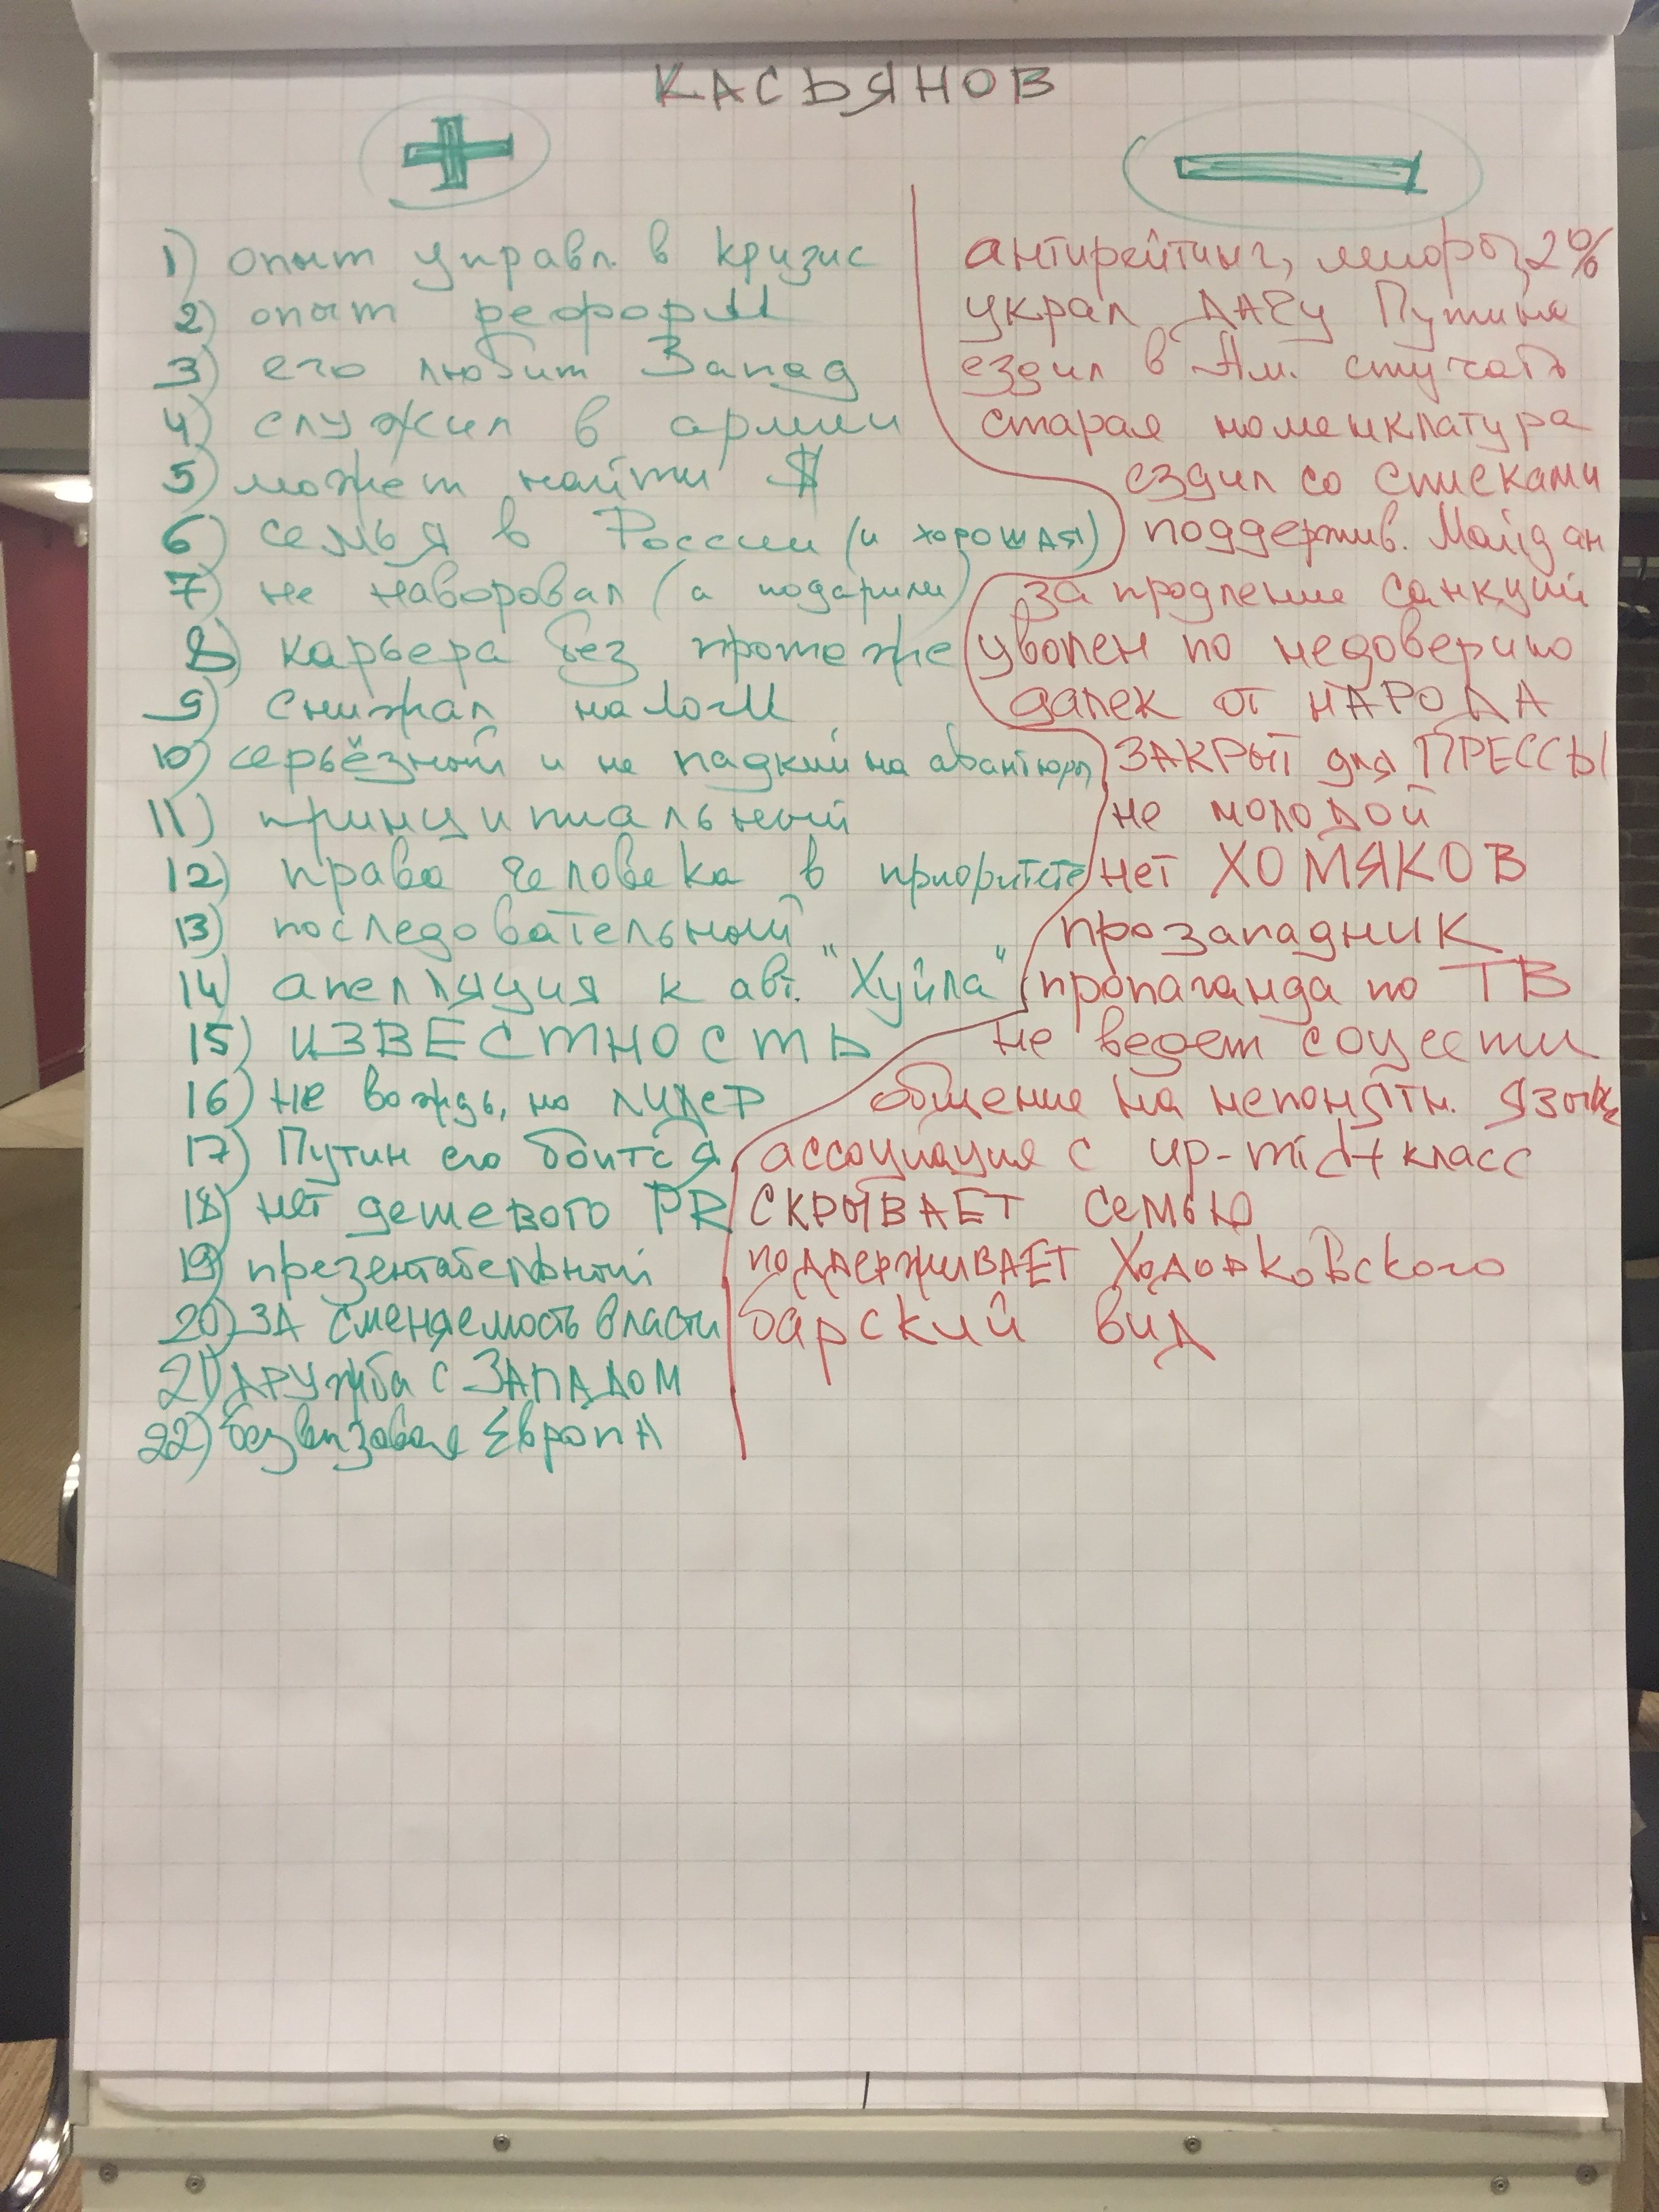 КАСЬЯНОВ
+ −
1) опыт управл. в кризис
2) опыт реформ
3) его любит Запад
4) служил в армии
5) может найти $
6) семья в России (и хорошая)
7) не наворовал (а подарили)
8) карьера без протеже
9) снижал налоги
10) серьёзный и не падкий на авантюры
11) принципиальный
12) права человека в приоритете
13) последовательный
14) апелляция к авт. "Хуйла"
15) ИЗВЕСТНОСТЬ
16) не вождь, но лидер
17) Путин его боится
18) нет дешевого PR
19) презентабельный
20) ЗА сменяемость власти
21) ДРУЖБА с ЗАПАДОМ
22) безвизовая ЕвропА
антирейтинг, мифы, 2%
украл ДАЧУ Путина
ездил в Ам. стучать
старая номенклатура
ездил со списками
поддержив. Майдан
за продление санкций
уволен по недоверию
далек от НАРОДА
ЗАКРЫТ для ПРЕССЫ
не молодой
нет ХОМЯКОВ
прозападник
пропаганда по ТВ
не ведет соцсети
общение на непонятн. языке
ассоциация с up-mid+ класс
СКРЫВАЕТ семью
поддерживает Ходорковского
барский вид